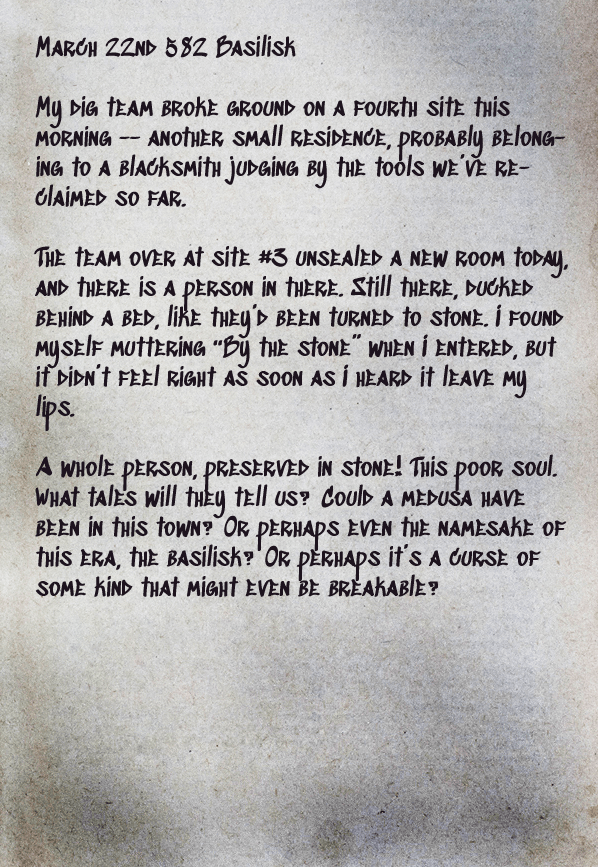 March 22nd 582 Basilisk
My dig team broke ground on a fourth site this
morning -- another small residence, probably belong-
ing to a blacksmith judging by the tools we've re-
claimed so far.
The team over at site #3 unsealed a new room today,
and there is a person in there. Still there, ducked
behind a bed, like they'd been turned to stone. I found
myself muttering "By the stone" when I entered, but
it didn't feel right as soon as I heard it leave my
lips.
A whole person, preserved in stone! This poor soul.
What tales will they tell us? Could a medusa have
been in this town? Or perhaps even the namesake of
this era, the basilisk? Or perhaps it's a curse of
some kind that might even be breakable?